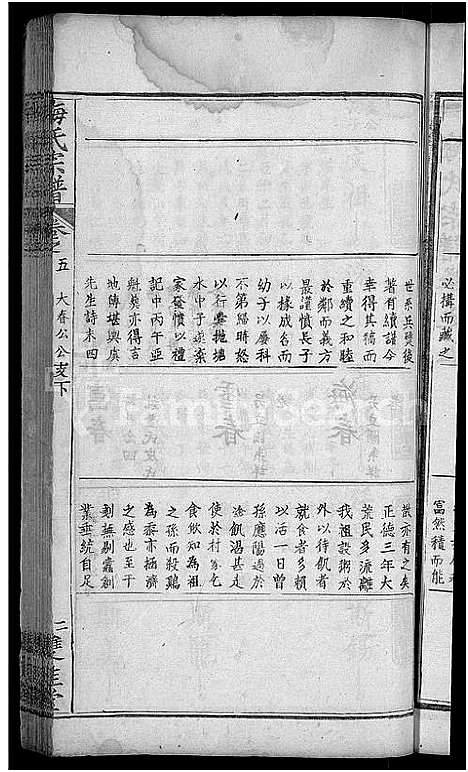 必構而藏之
富然積而能
世系兵燹後
著有續譜今
幸得其稿而
重續之和睦
於鄰而義方
最謹慎長子
以椽成名而
幼子以屢科
不第歸時怒
以行
水中子孫
家發憤以禮
記中丙午亞
魁英亦得吉
地傳堪輿廣
先生詩末四
散亦有之矣
正德三年大
荒民多流離
我祖設粥於
外以待飢者
就食者多賴
以活一日曾
孫應陽過於
途飢渴甚走
使於村外乞
食飲知為祖
之孫而殺鷄
為黍亦捂濟
之感也至于
剗蕪剔蠹創
業垂統自足
梅氏宗譜
卷之
五
大春公公支下
二
雙桂堂
FamilySearch